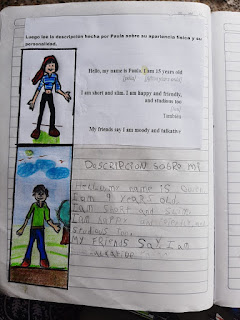 Luego lee la descripción hecha por Paula sobre su apariencia física y su
personalidad.
Hello, my name is Paula. I am 15 years old
I am short and slim. I am happy and friendly,
and studious too
También
My friends say I am moody and talkative
DESCRIPCION SOBRE MI
name is
I am 9 years old.
I am short and slim
I am happy
studious too.
My FRIENDS Say I am